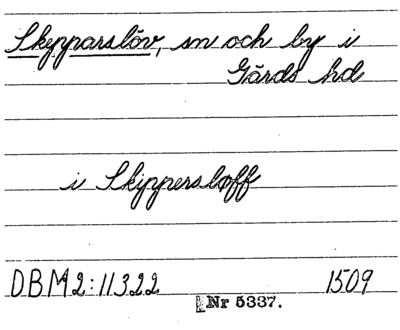 Skypparslöv, sn och by i
Gärds hd
i Skippersløff
DBM2:11322 1509
Nr 5337.